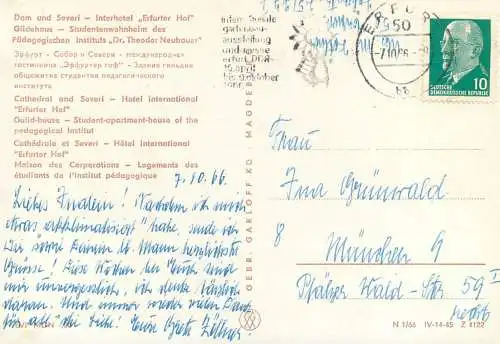 Dom und Severi — Interhotel „Erfurter Hof"
Gildehaus — Studentenwohnheim des
Pädagogischen Instituts „Dr. Theodor Neubauer"
Эрфурт · Собор и Севери · международная
гостиница "Эрфуртер гоф" · Здание гильдии
общежитие студентов педагогического
института
Cathedral and Severi — Hotel international
"Erfurter Hof"
Guild-house — Student-apartment-house of the
pedagogical Institut
Cathédrale et Severi — Hôtel international
"Erfurter Hof"
Maison des Corporations — Logements des
étudiants de l'Institut pédagogique
gartenbau-
ausstellung
und samen-
export
erfurt·DDR
bis 9. oktober
ERFURT
950
-7.10.66
bb
DEUTSCHE
DEMOKRATISCHE
REPUBLIK
10
GEBR. GARLOFF KG · MAGDEBURG
7.10.66
Liebes Inalein! Nachdem ich mich
etwas „akklimatisiert" habe, sende ich
Dir sowie Deinem lb. Mann herzlichste
Grüsse! Die Wochen bei Euch sind
mir unvergesslich, ich denke täglich
daran. Und immer wieder vielen Dank
für all' die Liebe! Eure Grete Zöllner
Frau
Ina Grünwald
8 München 9
Pfälzer Wald-Str 59 I
rechts
N 1/66 IV-14-45 Z 4122